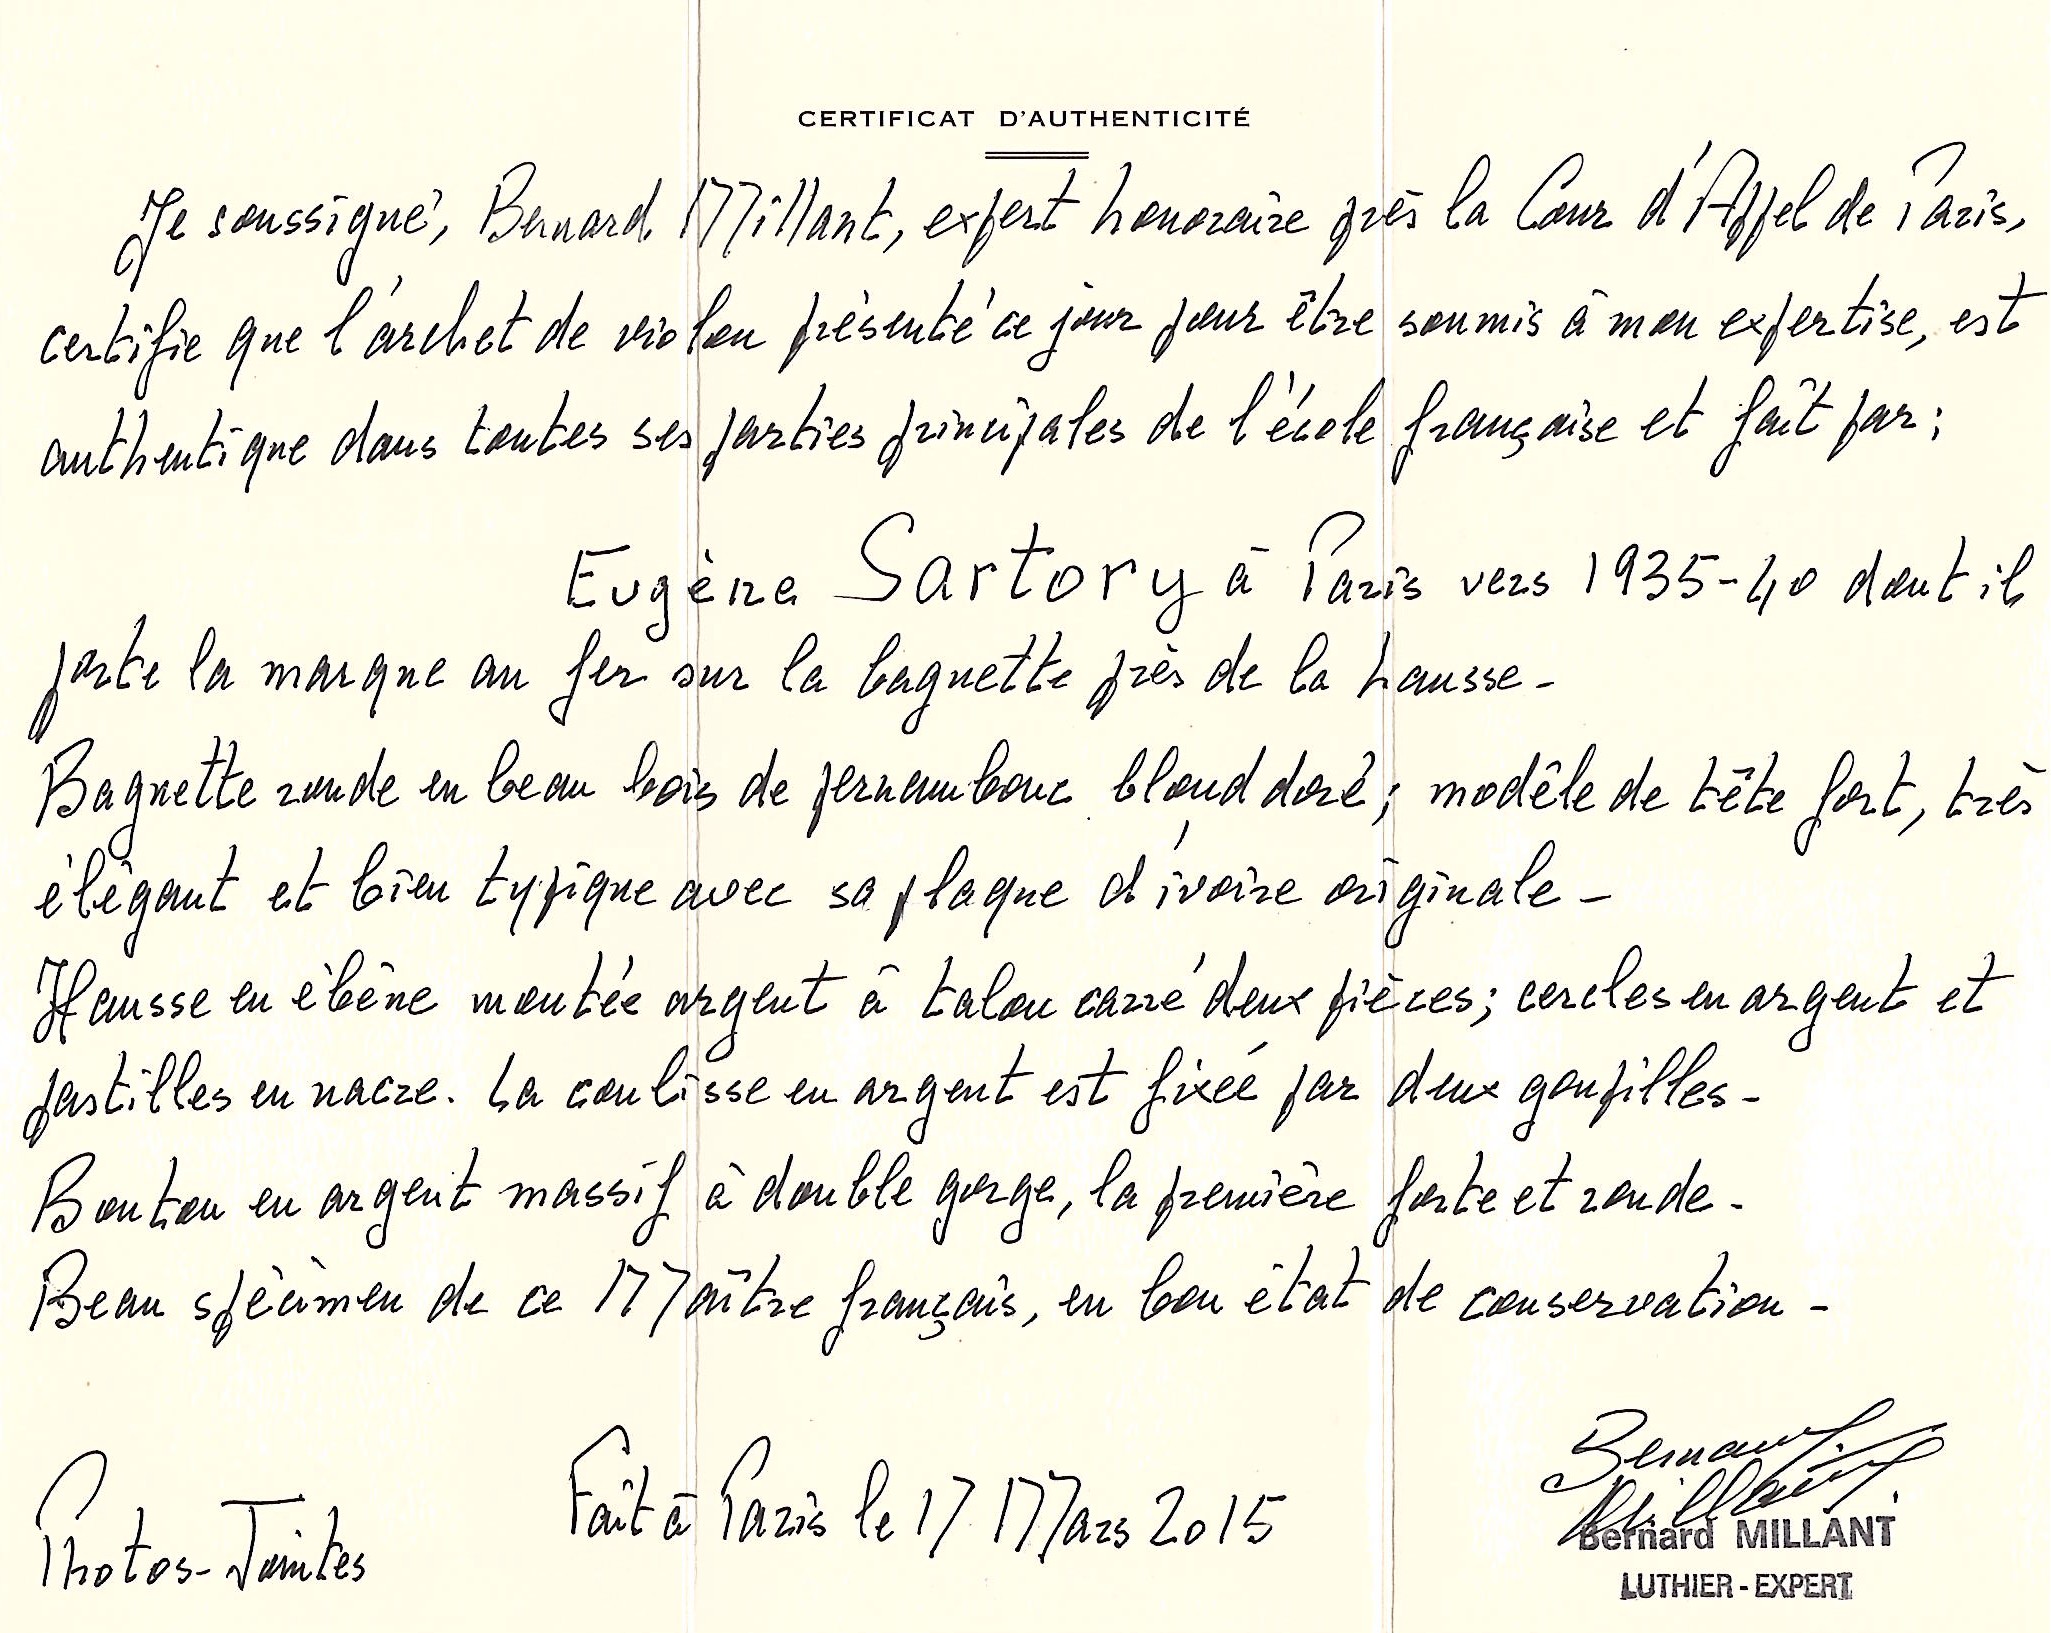 CERTIFICAT D'AUTHENTICITÉ
Je soussigné, Bernard Millant, expert honoraire près la Cour d'Appel de Paris,
certifie que l'archet de violon présenté ce jour pour être soumis à mon expertise, est
authentique dans toutes ses parties principales de l'école française et fait par :
Eugène Sartory à Paris vers 1935-40 dont il
porte la marque au fer sur la baguette près de la hausse -
Baguette ronde en beau bois de pernambouc blond doré ; modèle de tête fort, très
élégant et bien typique avec sa plaque d'ivoire originale -
Hausse en ébène montée argent à talon carré deux pièces ; cercles en argent et
pastilles en nacre. La coulisse en argent est fixée par deux goupilles -
Bouton en argent massif à double gorge, la première forte et ronde -
Beau spécimen de ce Maître français, en bon état de conservation -
Fait à Paris le 17 Mars 2015
Photos-Jointes
Bernard Millant
Bernard MILLANT
LUTHIER - EXPERT